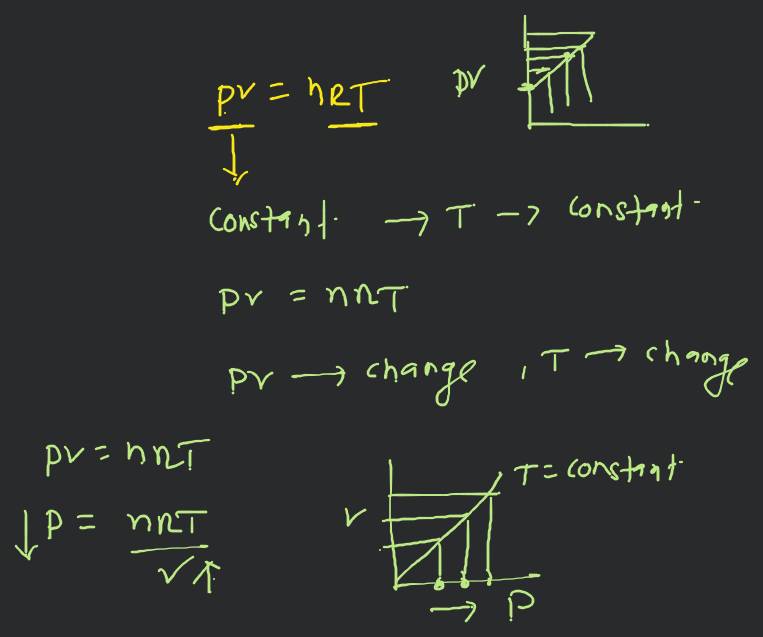 PV = nRT
PV
Constant. → T → Constant.
PV = nRT
PV → change , T → change
PV = nRT
↓ P = nRT
V ↑
T = constant.
V
→ P